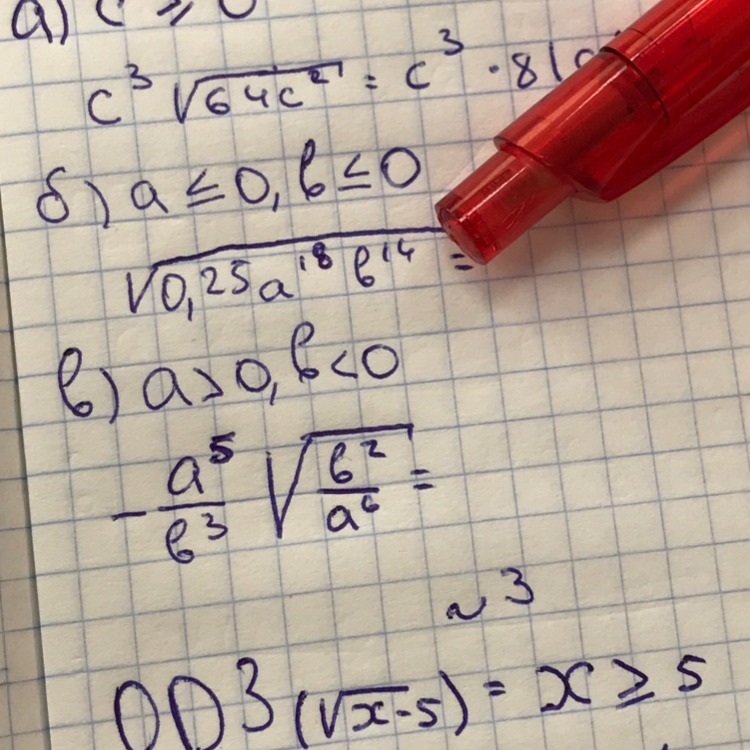 а) c ≥ 0
c³ √(64c²) = c³ · 8|c
б) a ≤ 0, b ≤ 0
√(0,25a¹⁸b¹⁴) =
в) a > 0, b < 0
-a⁵/b³ √(b²/a⁶) =
~ 3
ОДЗ (√x-5) = x ≥ 5